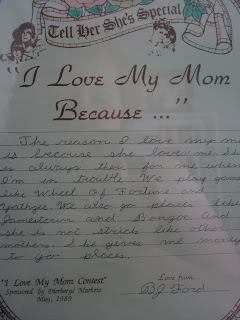 Tell Her She's Special
"I Love My Mom
Because ..."
The reason I love my mo
is because she loves me. She
is always there for me when
I'm in trouble. We play game
like Wheel Of Fortune and
Yahtzee. We also go places like
Jamestown and Bangor. And
she is not strick like other
mothers. She gives me money
to go places.
"I Love My Mom Contest"
Sponsored by Dierbergs Markets
May, 1989
Love from
BJ Ford